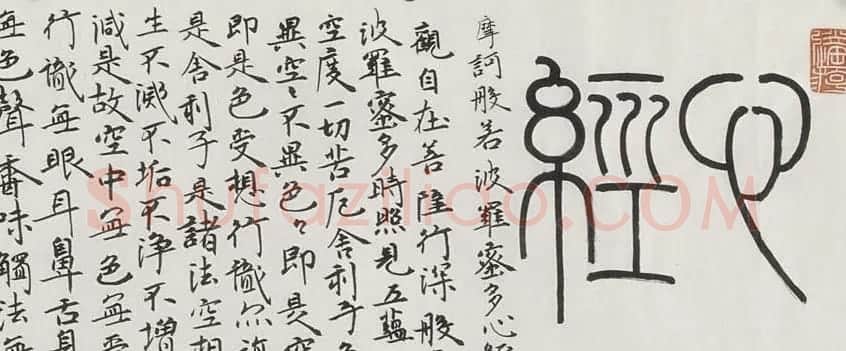 心經
摩訶般若波羅蜜多心經
觀自在菩薩行深般
波羅蜜多時照見五蘊
空度一切苦厄舍利子
異空々不異色々即是空
即是色受想行識亦復
是舍利子是諸法空相
生不滅不垢不净不增
減是故空中無色無受
行識無眼耳鼻舌身
無色聲香味觸法無
Shufaziliao.COM